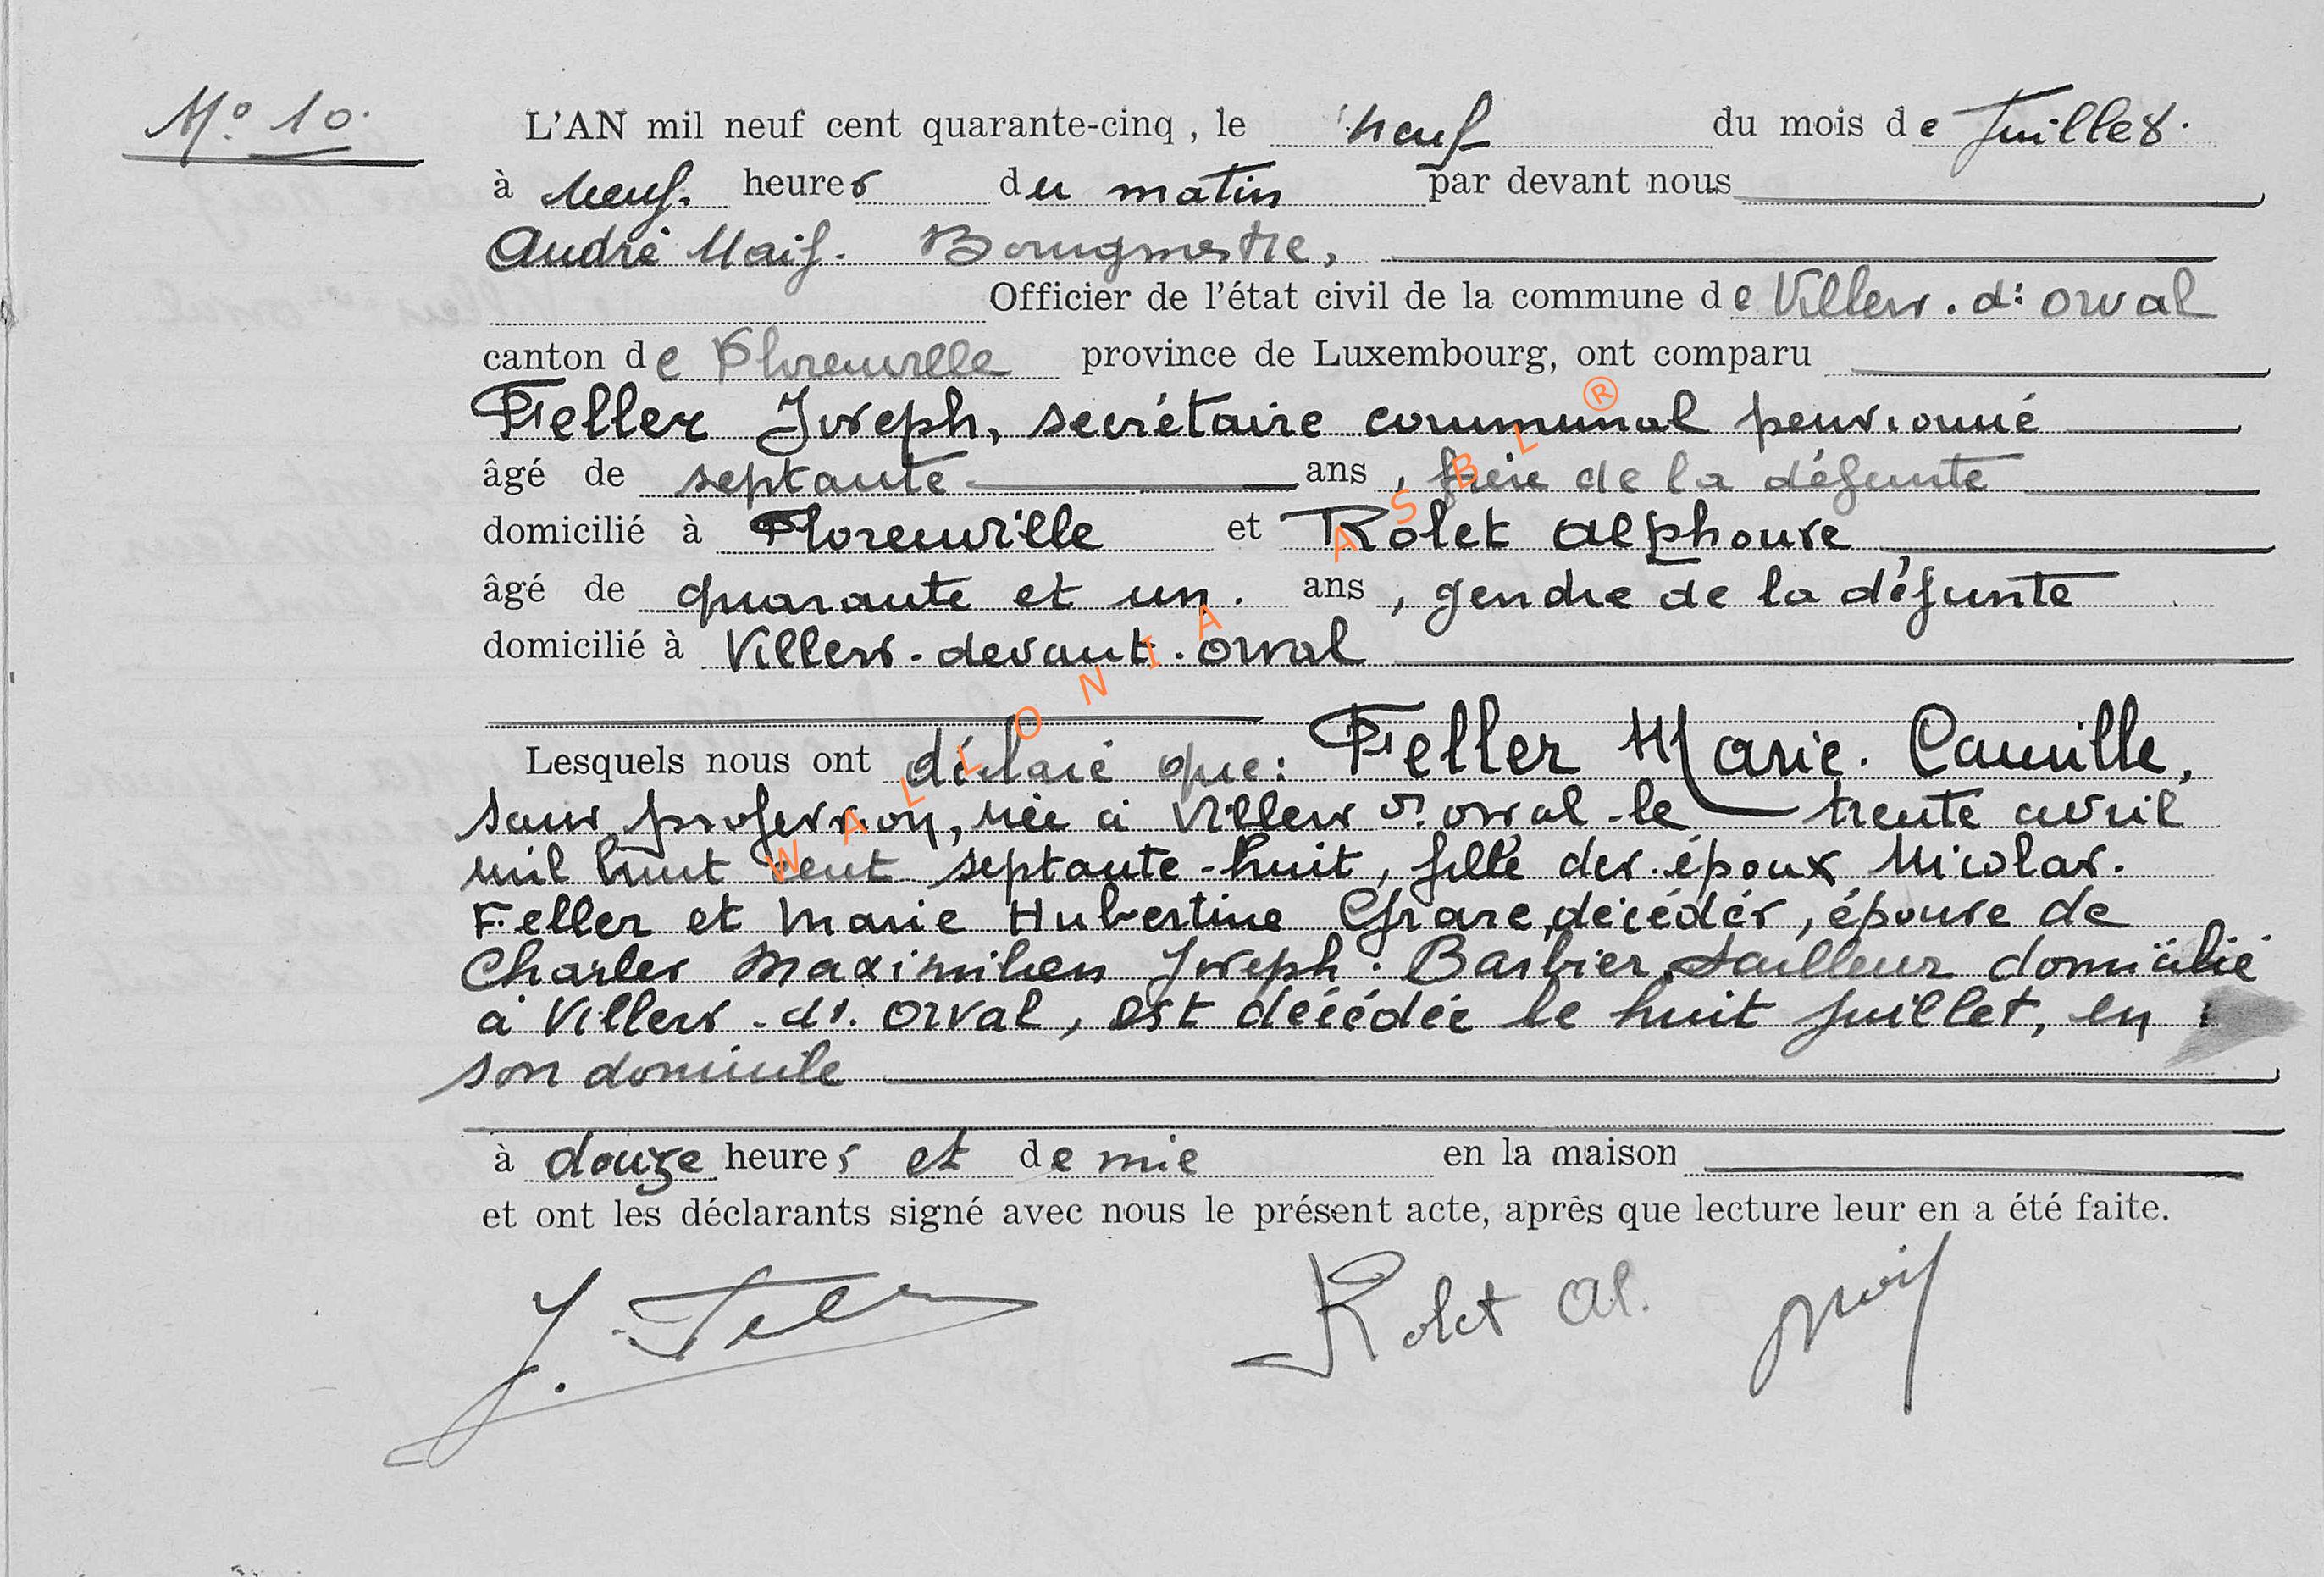 N° 10.
L'AN mil neuf cent quarante-cinq , le neuf du mois de Juillet.
à neuf. heures du matin par devant nous
André Naif. Bourgmestre,
Officier de l'état civil de la commune de Villers. dt orval
canton de Florenville province de Luxembourg, ont comparu
Feller Joseph, secrétaire communal pensionné
âgé de septante ans , frère de la défunte
domicilié à Florenville et Rolet Alphonse
âgé de quarante et un. ans , gendre de la défunte
domicilié à Villers-devant-orval
Lesquels nous ont déclaré que: Feller Marie. Camille,
sans profession, née à Villers dt. orval - le trente avril
mil huit cent septante-huit, fille des époux Nicolas.
Feller et Marie Hubertine Grare, décédés, épouse de
Charles Maximilien Joseph. Barbier, tailleur domicilié
à Villers. dt. orval, est décédée le huit juillet, en
son domicile
à douze heures et demie en la maison
et ont les déclarants signé avec nous le présent acte, après que lecture leur en a été faite.
J. Feller Rolet Al. Naif
WALLONIA ASBL ®